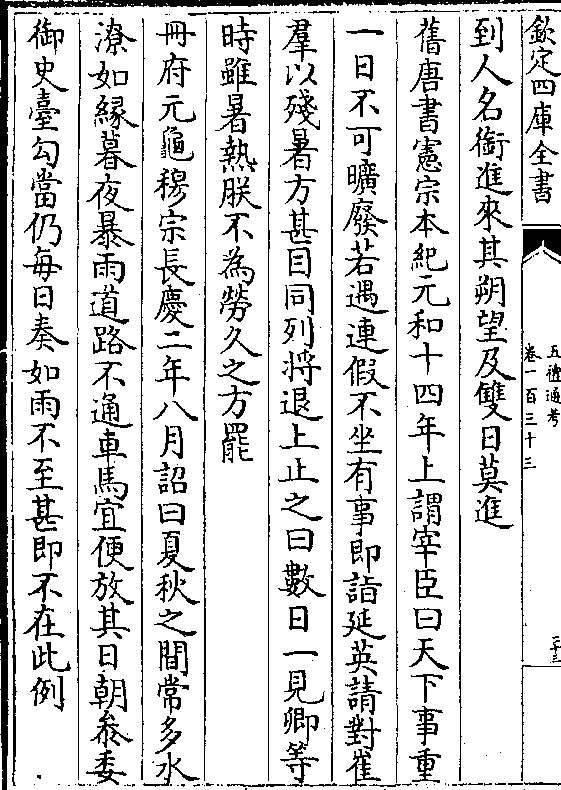 欽定四庫全書
五禮通考
卷一百三十三
二十三
到人名銜進來其朔望及雙日莫進
舊唐書憲宗本紀元和十四年上謂宰臣曰天下事重
一日不可曠廢若遇連假不坐有事即詣延英請對崔
羣以殘暑方甚目同列將退上止之曰數日一見卿等
時雖暑熱朕不為勞久之方罷
冊府元龜穆宗長慶二年八月詔曰夏秋之間常多水
潦如縁暮夜暴雨道路不通車馬宜便放其日朝叅委
御史臺勾當仍每日奏如雨不至甚即不在此例